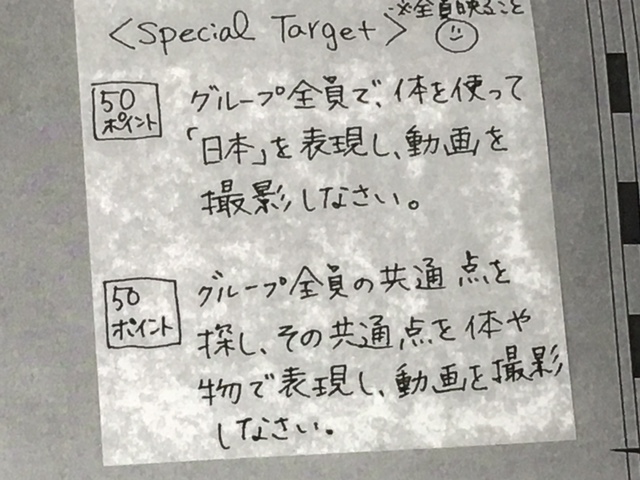 <Special Target>
※全員映ること
50
ポイント
グループ全員で、体を使って
「日本」を表現し、動画を
撮影しなさい。
50
ポイント
グループ全員の共通点を
探し、その共通点を体や
物で表現し、動画を撮影
しなさい。